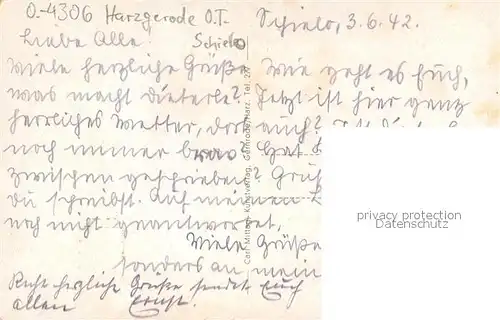 O.-4306 Harzgerode O.T. Schielo
Schielo, 3.6.42.
Liebe Alle!
Viele herzliche Grüße
was macht Dieterle?
herrliches Wetter, dort auch?
noch immer brav? Hat
zwischen geschrieben? Grüß
du schreibst. Auf meinen
noch nicht geantwortet.
Viele Grüße
sonders an mein
Recht herzliche Grüße sendet Euch
allen Ernst.
Wie geht es Euch,
Jetzt ist hier ganz
Carl Mittag, Kunstverlag, Gernrode/Harz. Tel. 27
privacy protection
Datenschutz